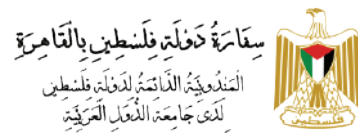 سِفَارَةُ دَوْلَةِ فِلَسْطِين بِالْقَاهِرَةِ
المَنْدُوبِيَّةُ الدَّائِمَةُ لَدَوْلَةِ فِلَسْطِين
لَدَى جَامِعَةِ الدُّوَلِ الْعَرَبِيَّةِ
فلسطين